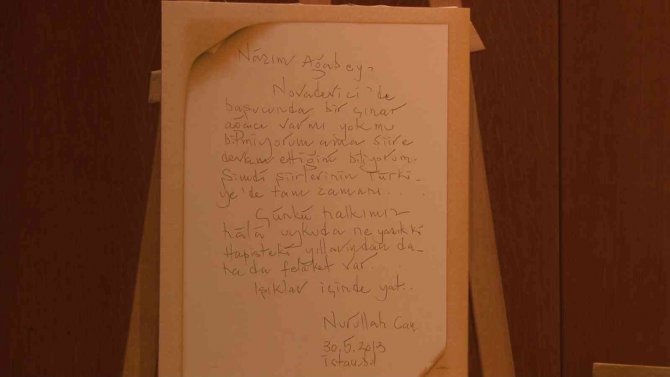 Nâzım Ağabey,
Novadevici'de
başucunda bir çınar
ağacı var mı yok mu
bilmiyorum ama şiire
devam ettiğini biliyorum.
Şimdi şiirlerinin Türki-
ye'de tam zamanı...
Çünkü halkımız
hâlâ uykuda ne yazık ki
Hapisteki yıllarından da-
ha da felâket var.
Işıklar içinde yat.
Nurullah Can
30.5.2013
İstanbul